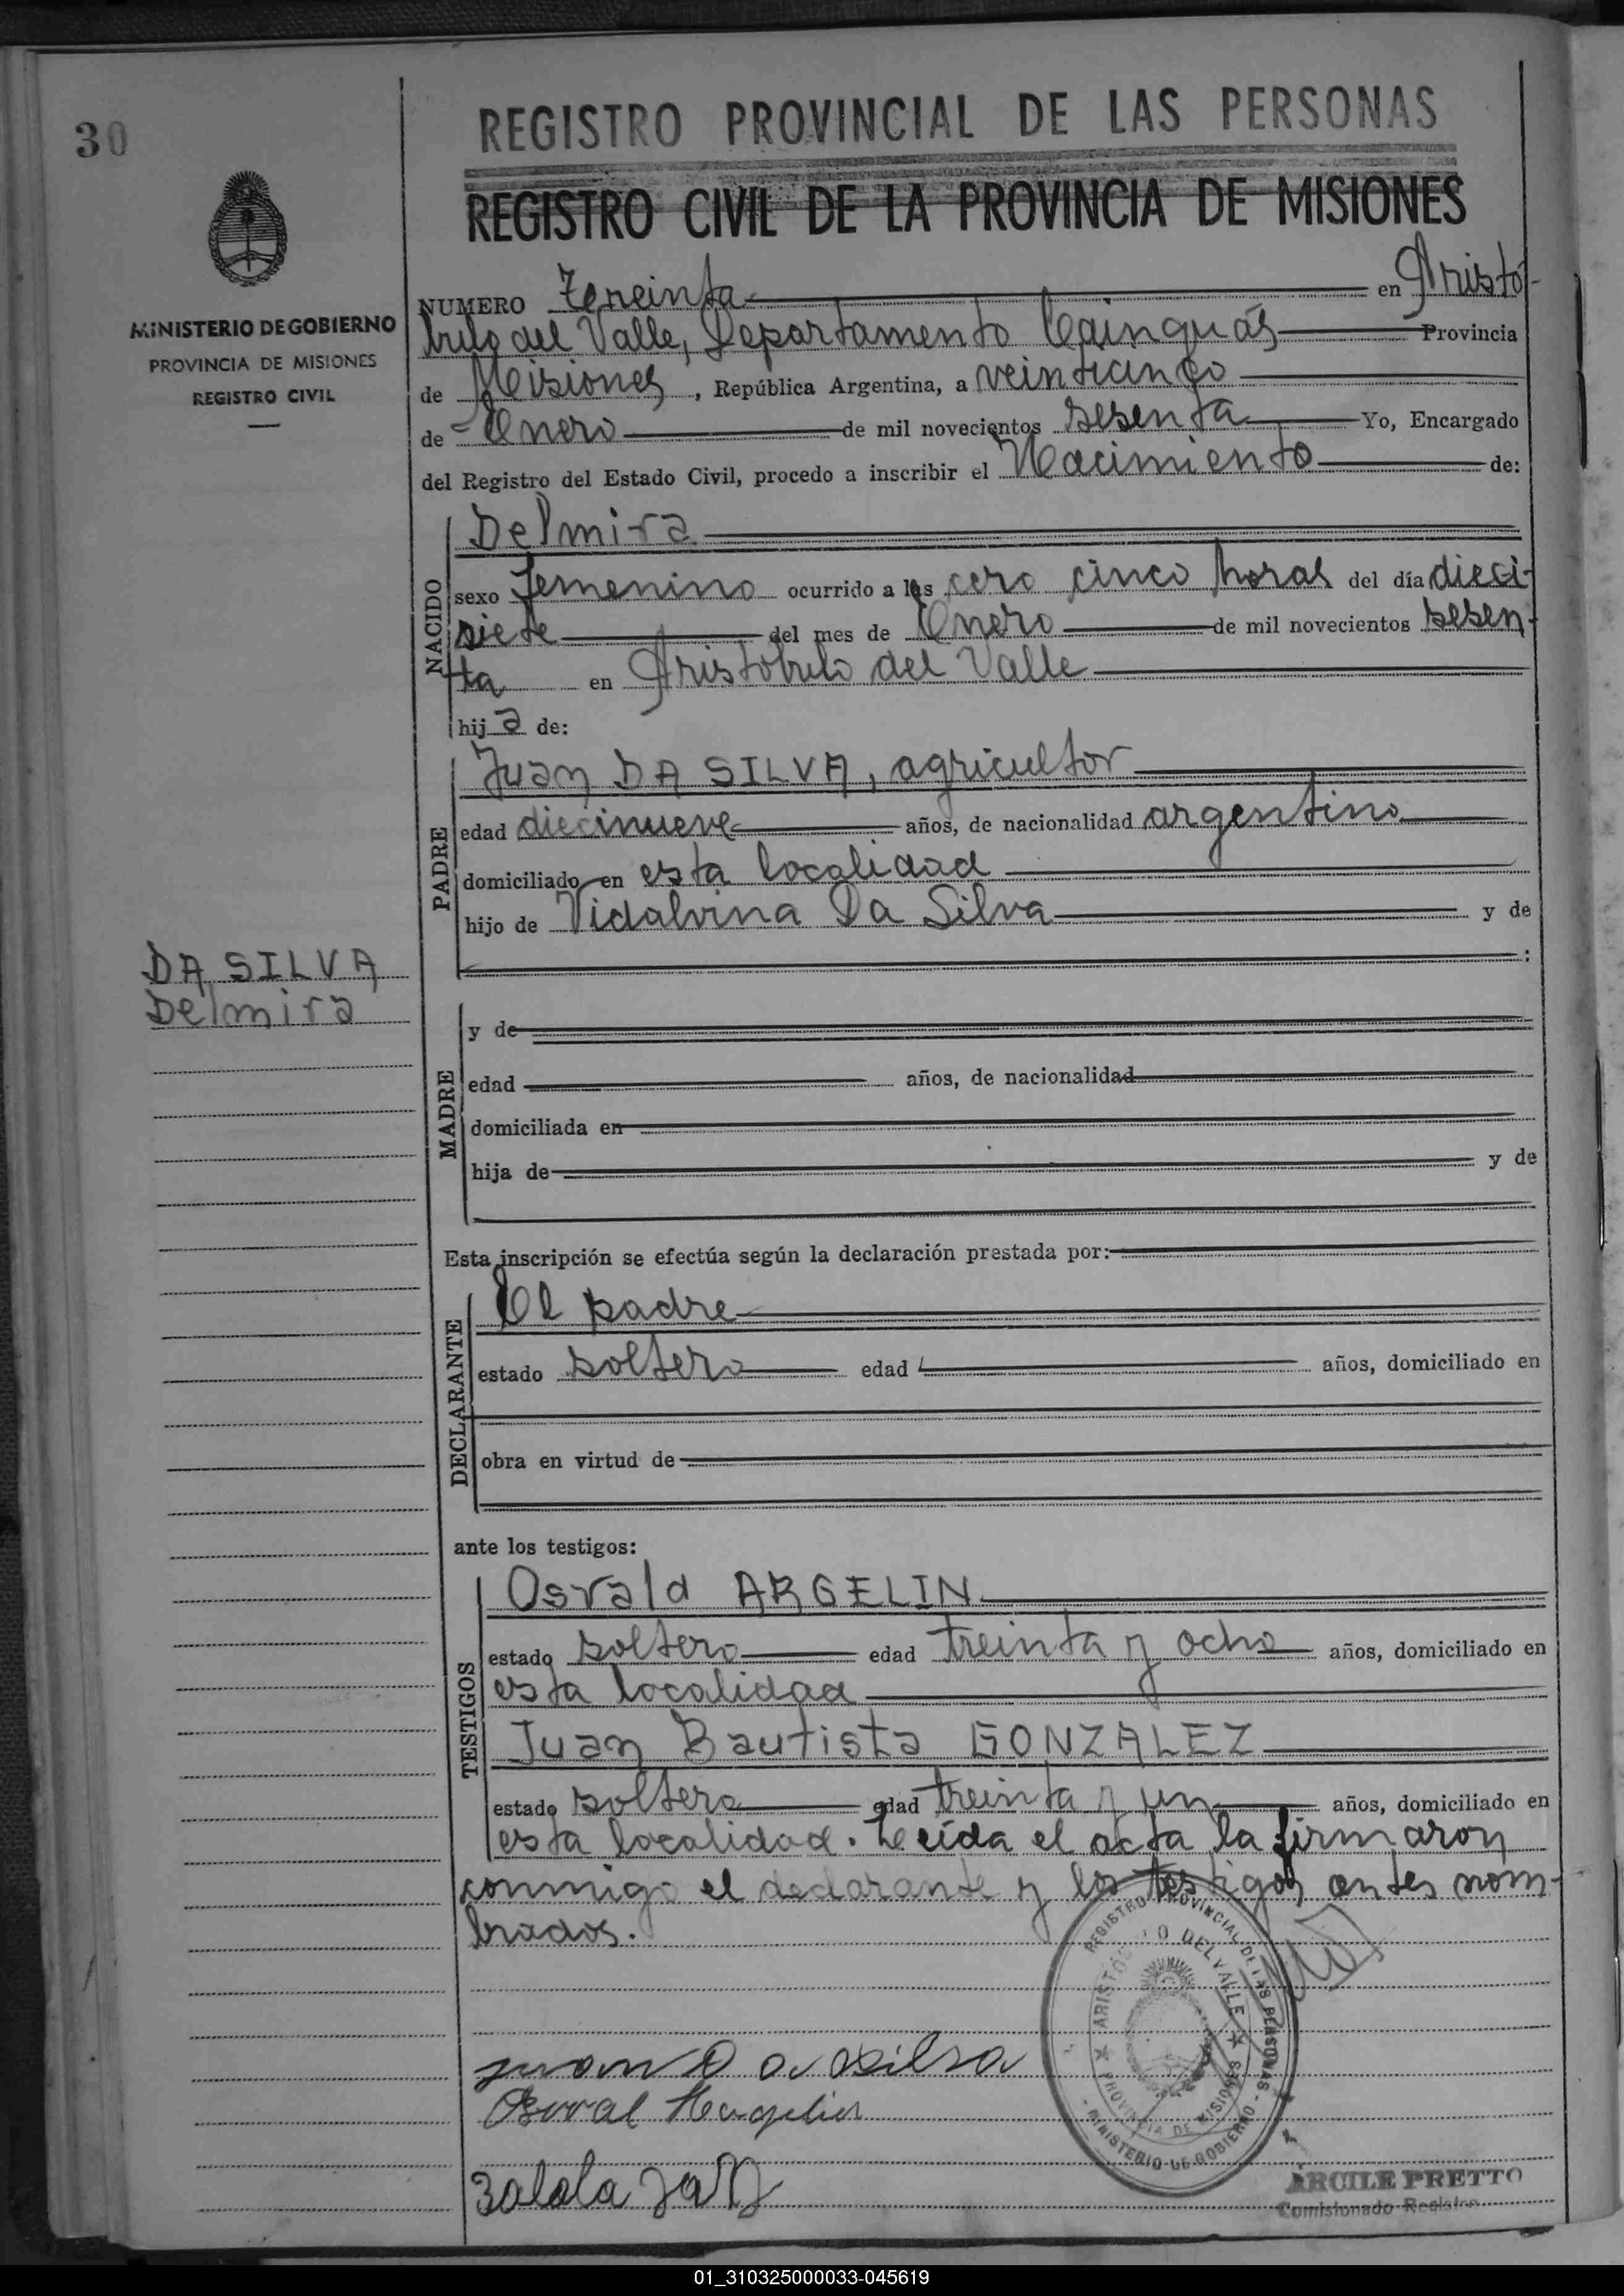 30
REGISTRO PROVINCIAL DE LAS PERSONAS
REGISTRO CIVIL DE LA PROVINCIA DE MISIONES
MINISTERIO DE GOBIERNO
PROVINCIA DE MISIONES
REGISTRO CIVIL
NUMERO Treinta en Aristó-
bulo del Valle, Departamento Cainguás Provincia
de Misiones, República Argentina, a veinticinco
de Enero de mil novecientos sesenta Yo, Encargado
del Registro del Estado Civil, procedo a inscribir el Nacimiento de:
NACIDO
Delmira
sexo femenino ocurrido a las cero cinco horas del día dieci-
siete del mes de Enero de mil novecientos sesen-
ta en Aristóbulo del Valle
hija de:
PADRE
Juan DA SILVA, agricultor
edad diecinueve años, de nacionalidad argentino
domiciliado en esta localidad
hijo de Vidalvina Da Silva y de
:
DA SILVA
Delmira
MADRE
y de
edad años, de nacionalidad
domiciliada en
hija de y de
Esta inscripción se efectúa según la declaración prestada por:
DECLARANTE
El padre
estado soltero edad años, domiciliado en
obra en virtud de
ante los testigos:
TESTIGOS
Osvald ARGELIN
estado soltero edad treinta y ocho años, domiciliado en
esta localidad
Juan Bautista GONZALEZ
estado soltero edad treinta y un años, domiciliado en
esta localidad. Leída el acta la firmaron
conmigo el declarante y los testigos antes nom-
brados.
REGISTRO PROVINCIAL DE LAS PERSONAS
ARISTÓBULO DEL VALLE
PROVINCIA DE MISIONES
MINISTERIO DE GOBIERNO
ARCILE PRETTO
Comisionado Registro
01_310325000033-045619